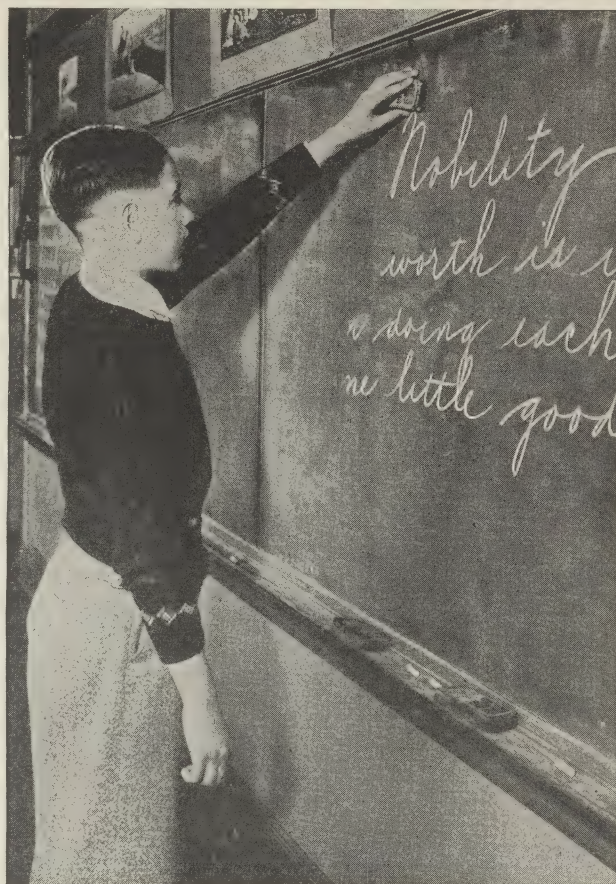 Nobility
worth is i
n doing each
ne little good